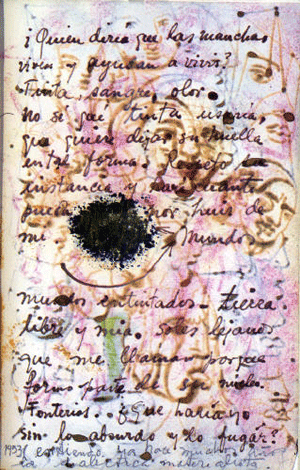 ¿Quien diría que las manchas
viven y ayudan a vivir?
Tinta, sangre, olor.
No sé qué tinta usaría,
que quiere dejar su huella
en tal forma. Respeto su
instancia y haré cuanto
pueda por huir de
mi mundos
mundos entintados – tierra
libre y mia. soles lejanos
que me llaman porque
formo parte de su núcleo.
Tonterias.. ¿Que haría yo
sin lo absurdo y lo fugaz?
1953 entiendo ya hace muchos años
la dialéctica materialista